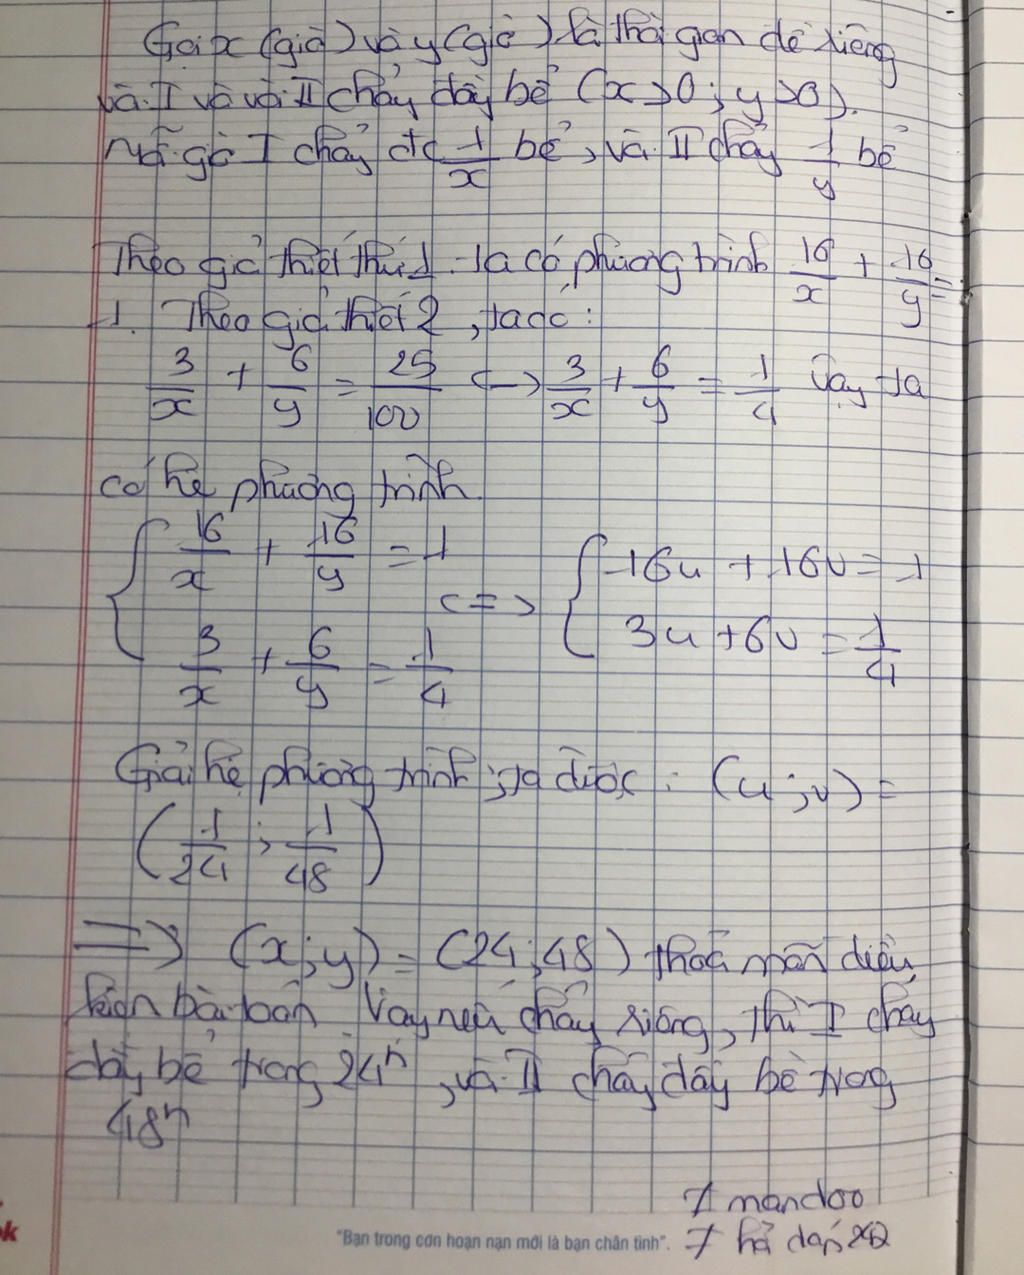 Gọi x (giờ) và y (giờ) là thời gian để riêng
vòi I và vòi II chảy đầy bể (x > 0 ; y > 0).
Mỗi giờ I chảy đc 1/x bể, vòi II chảy 1/y bể
Theo giả thiết thứ 1 ta có phương trình 16/x + 16/y =
1. Theo giả thiết 2, ta có :
3/x + 6/y = 25/100 <-> 3/x + 6/y = 1/4 Vậy ta
có hệ phương trình
{ 16/x + 16/y = 1 <=> { 16u + 16v = 1
3/x + 6/y = 1/4 3u + 6v = 1/4
Giải hệ phương trình, ta được : (u ; v) =
(1/24 ; 1/48)
=> (x ; y) = (24 ; 48) thoả mãn điều
kiện bài toán Vậy nếu chảy riêng, thì I chảy
đầy bể trong 24h, vòi II chảy đầy bể trong
48h
7 mandoo
"Bạn trong cơn hoạn nạn mới là bạn chân tình".
ok